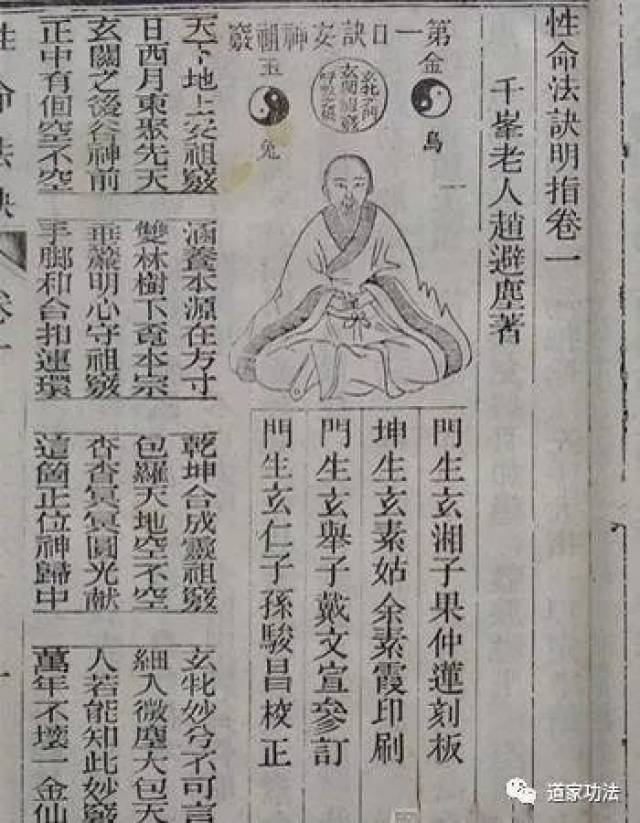 性命法訣明指卷一
千峯老人趙避塵著
第一口訣安神祖竅
金烏
玄牝之門
玄關祖竅
呼吸之根
玉兔
門生玄湘子果仲蓮刻板
坤生玄素姑余素霞印刷
門生玄舉子戴文宣參訂
門生玄仁子孫駿昌校正
天下地上安祖竅
日西月東聚先天
玄關之後谷神前
正中有個空不空
涵養本源在方寸
雙林樹下覔本宗
垂簾明心守祖竅
手脚和合扣連環
乾坤合成靈祖竅
包羅天地空不空
杳杳冥冥圓光献
這箇正位神歸中
玄牝妙兮不可言
細入微塵大包天
人若能知此妙竅
萬年不壞一金仙
性命法訣
卷一
一
道家功法